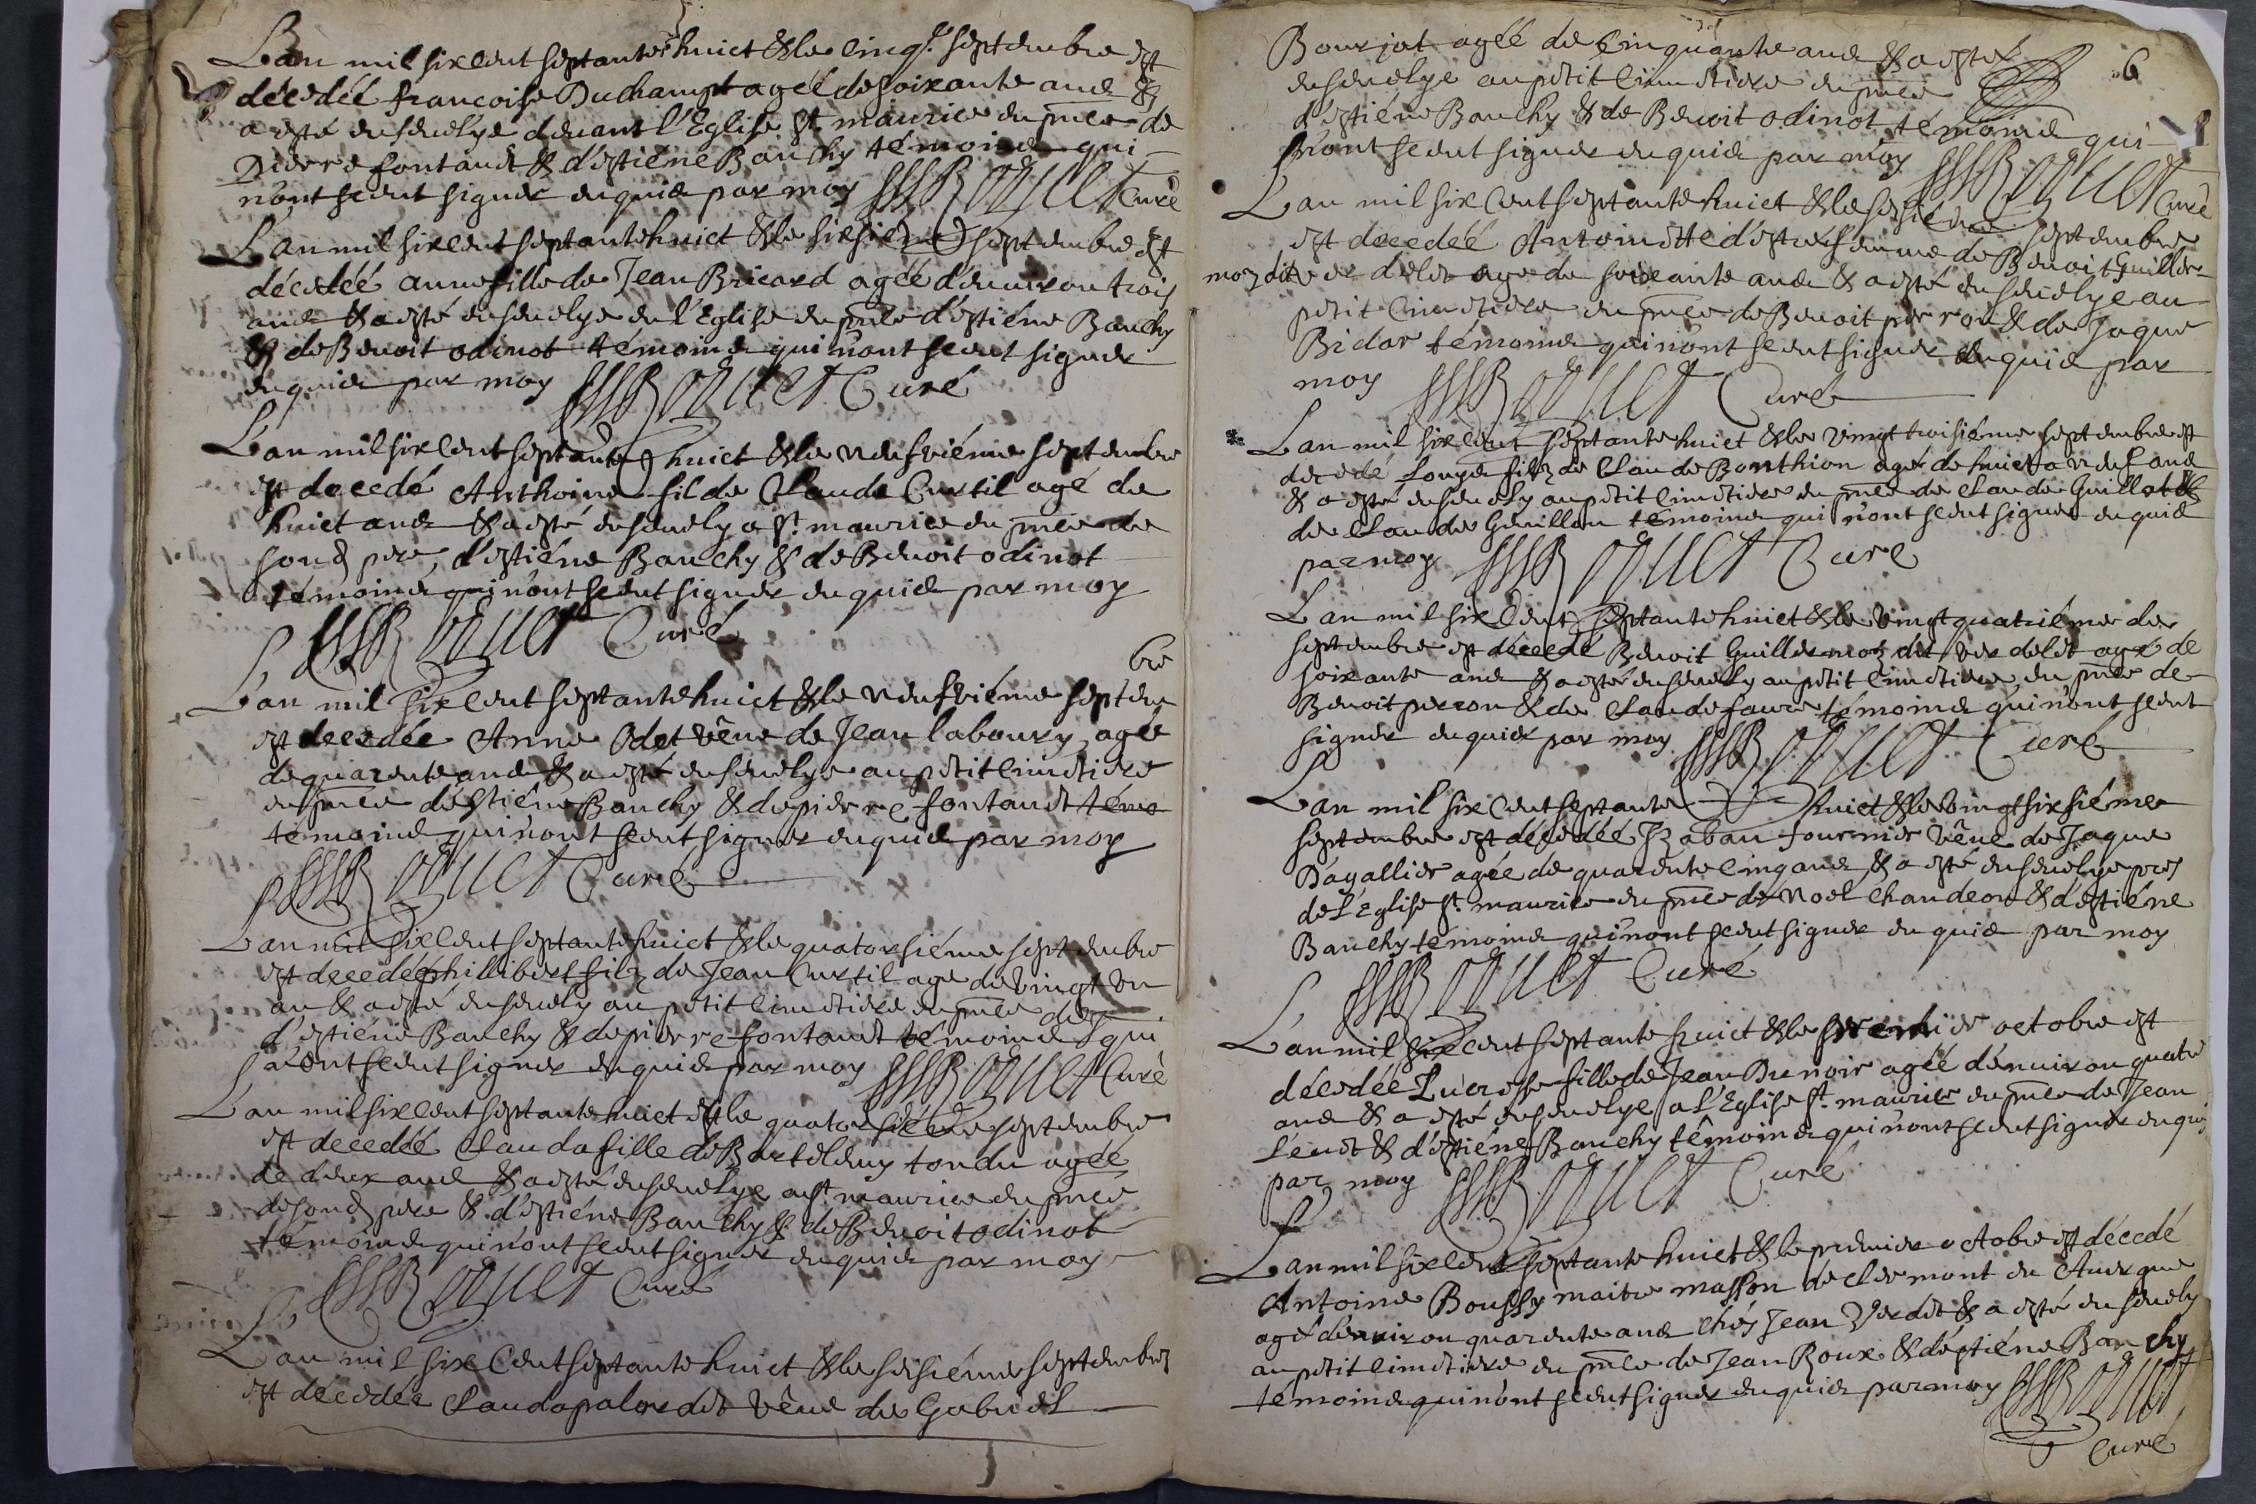 L'an mil six cent septante huict & le cinq.e septembre est
décédée françoise Duchampt agée de soixante ans &
a esté ensevelye devant l'Eglise St. maurice en pnce de
Pierre fontanet & d'estiéne Bauchy témoins qui
n'ont sceut signer enquis par moy Curé
L'an mil six cent septante huict & le sixsiéme septembre est
décédéé anne fille de Jean Bricard agéé d'environ trois
ans & a esté ensevelye en l'Eglise en pnce d'estiéne Bauchy
& de Benoit odinot témoins qui n'ont sceut signer
enquis par moy Curé
L'an mil six Cent septante huict & le neufviéme septembre
est decedé Anthoine fil de Claude Curtil agé de
huict ans & a esté ensevely a St. maurice en pnce de
sond pere, d'estiéne Bauchy & de Benoit odinot
témoins qui n'ont sceut signer enquis par moy
Curé
L'an mil six cent septante huict & le neufviéme septem
bre
est decedée Anne Odet vêue de Jean laboury agée
de quarente ans & a esté ensevelye au petit cimetiere
en pnce d'estiéne Bauchy & de pierre fontanet témo
témoins qui n'ont sceut signer enquis par moy
Curé
L'an mil six cent septante huict & le quatorsiéme septembre
est decedé phillibert filz de Jean Curtil agé de vingt un
an & a esté ensevely au petit cimetiere en pnce de
d'estiéne Bauchy & de pierre fontanet témoins qui
n'ont sceut signer enquis par moy Curé
L'an mil six cent septante huict & le quatorsiéme septembre
est decedéé Clauda fille de Bartelemy tondu agéé
de deux ans & a esté ensevelye a St maurice en pnce
de sond pere & d'estiéne Bauchy & de Benoit odinot
témoins qui n'ont sceut signer enquis par moy
Curé
L'an mil six Cent septante huict & le sesiéme septembre
est décédée Clauda vêue de Gabriel
Bourjot agéé de Cinquante ans & a esté
ensevelye au petit cimetiere en pnce
6
d'estiéne Bauchy & de Benoit odinot témoins qui
n'ont sceut signer enquis par moy Curé
L'an mil six Cent septante huict & le sesiéme septembre
est decedéé Antoinette femme de Benoit Guiller
moz dit agé de soixante ans & a esté ensevelye au
petit Cimetiere en pnce de Benoit perron & de Jaque
Bidar témoins qui n'ont sceut signer enquis par
moy Curé
L'an mil six cent septante huict & le vingt troisiéme septembre est
decedé Louys filz de Claude Bonthion agé de huict a neuf ans
& a esté ensevely au petit cimetiere en pnce de Claude Guillot &
de Claude Guillon témoins qui n'ont sceut signer enquis
par moy Curé
L'an mil six Cent septante huict & le vingt quatriéme de
septembre est décedé Benoit Guillermoz dit agé de
soixante ans & a esté ensevely au petit cimetiere en pnce de
Benoit perron & de Claude faure témoins qui n'ont sceut
signer enquis par moy Curé
L'an mil six Cent septante huict & le vingt sixsiéme
septembre est décédéé Izabau fournier vêue de Jaque
Dagallier agée de quarente cinq ans & a esté ensevelye pres
de l'Eglise St. maurice en pnce de Noel Chandeon & d'estiéne
Bauchy témoins qui n'ont sceut signer enquis par moy
Curé
L'an mil six cent septante huict & le premier octobre est
décédée Lucresse fille de Jean Dunoir agéé d'environ quatre
ans & a esté ensevelye a l'Eglise St. maurice en pnce de Jean
& d'estiéne Bauchy témoins qui n'ont sceut signer enquis
par moy Curé
L'an mil six cent septante huict & le premier octobre est décedé
Antoine Boussy maitre masson de Clermont en Auvergne
agé d'environ quarente ans chés Jean Verdet & a esté ensevely
au petit cimetiere en pnce de Jean Roux & d'estiéne Bauchy
témoins qui n'ont sceut signer enquis par moy
Curé